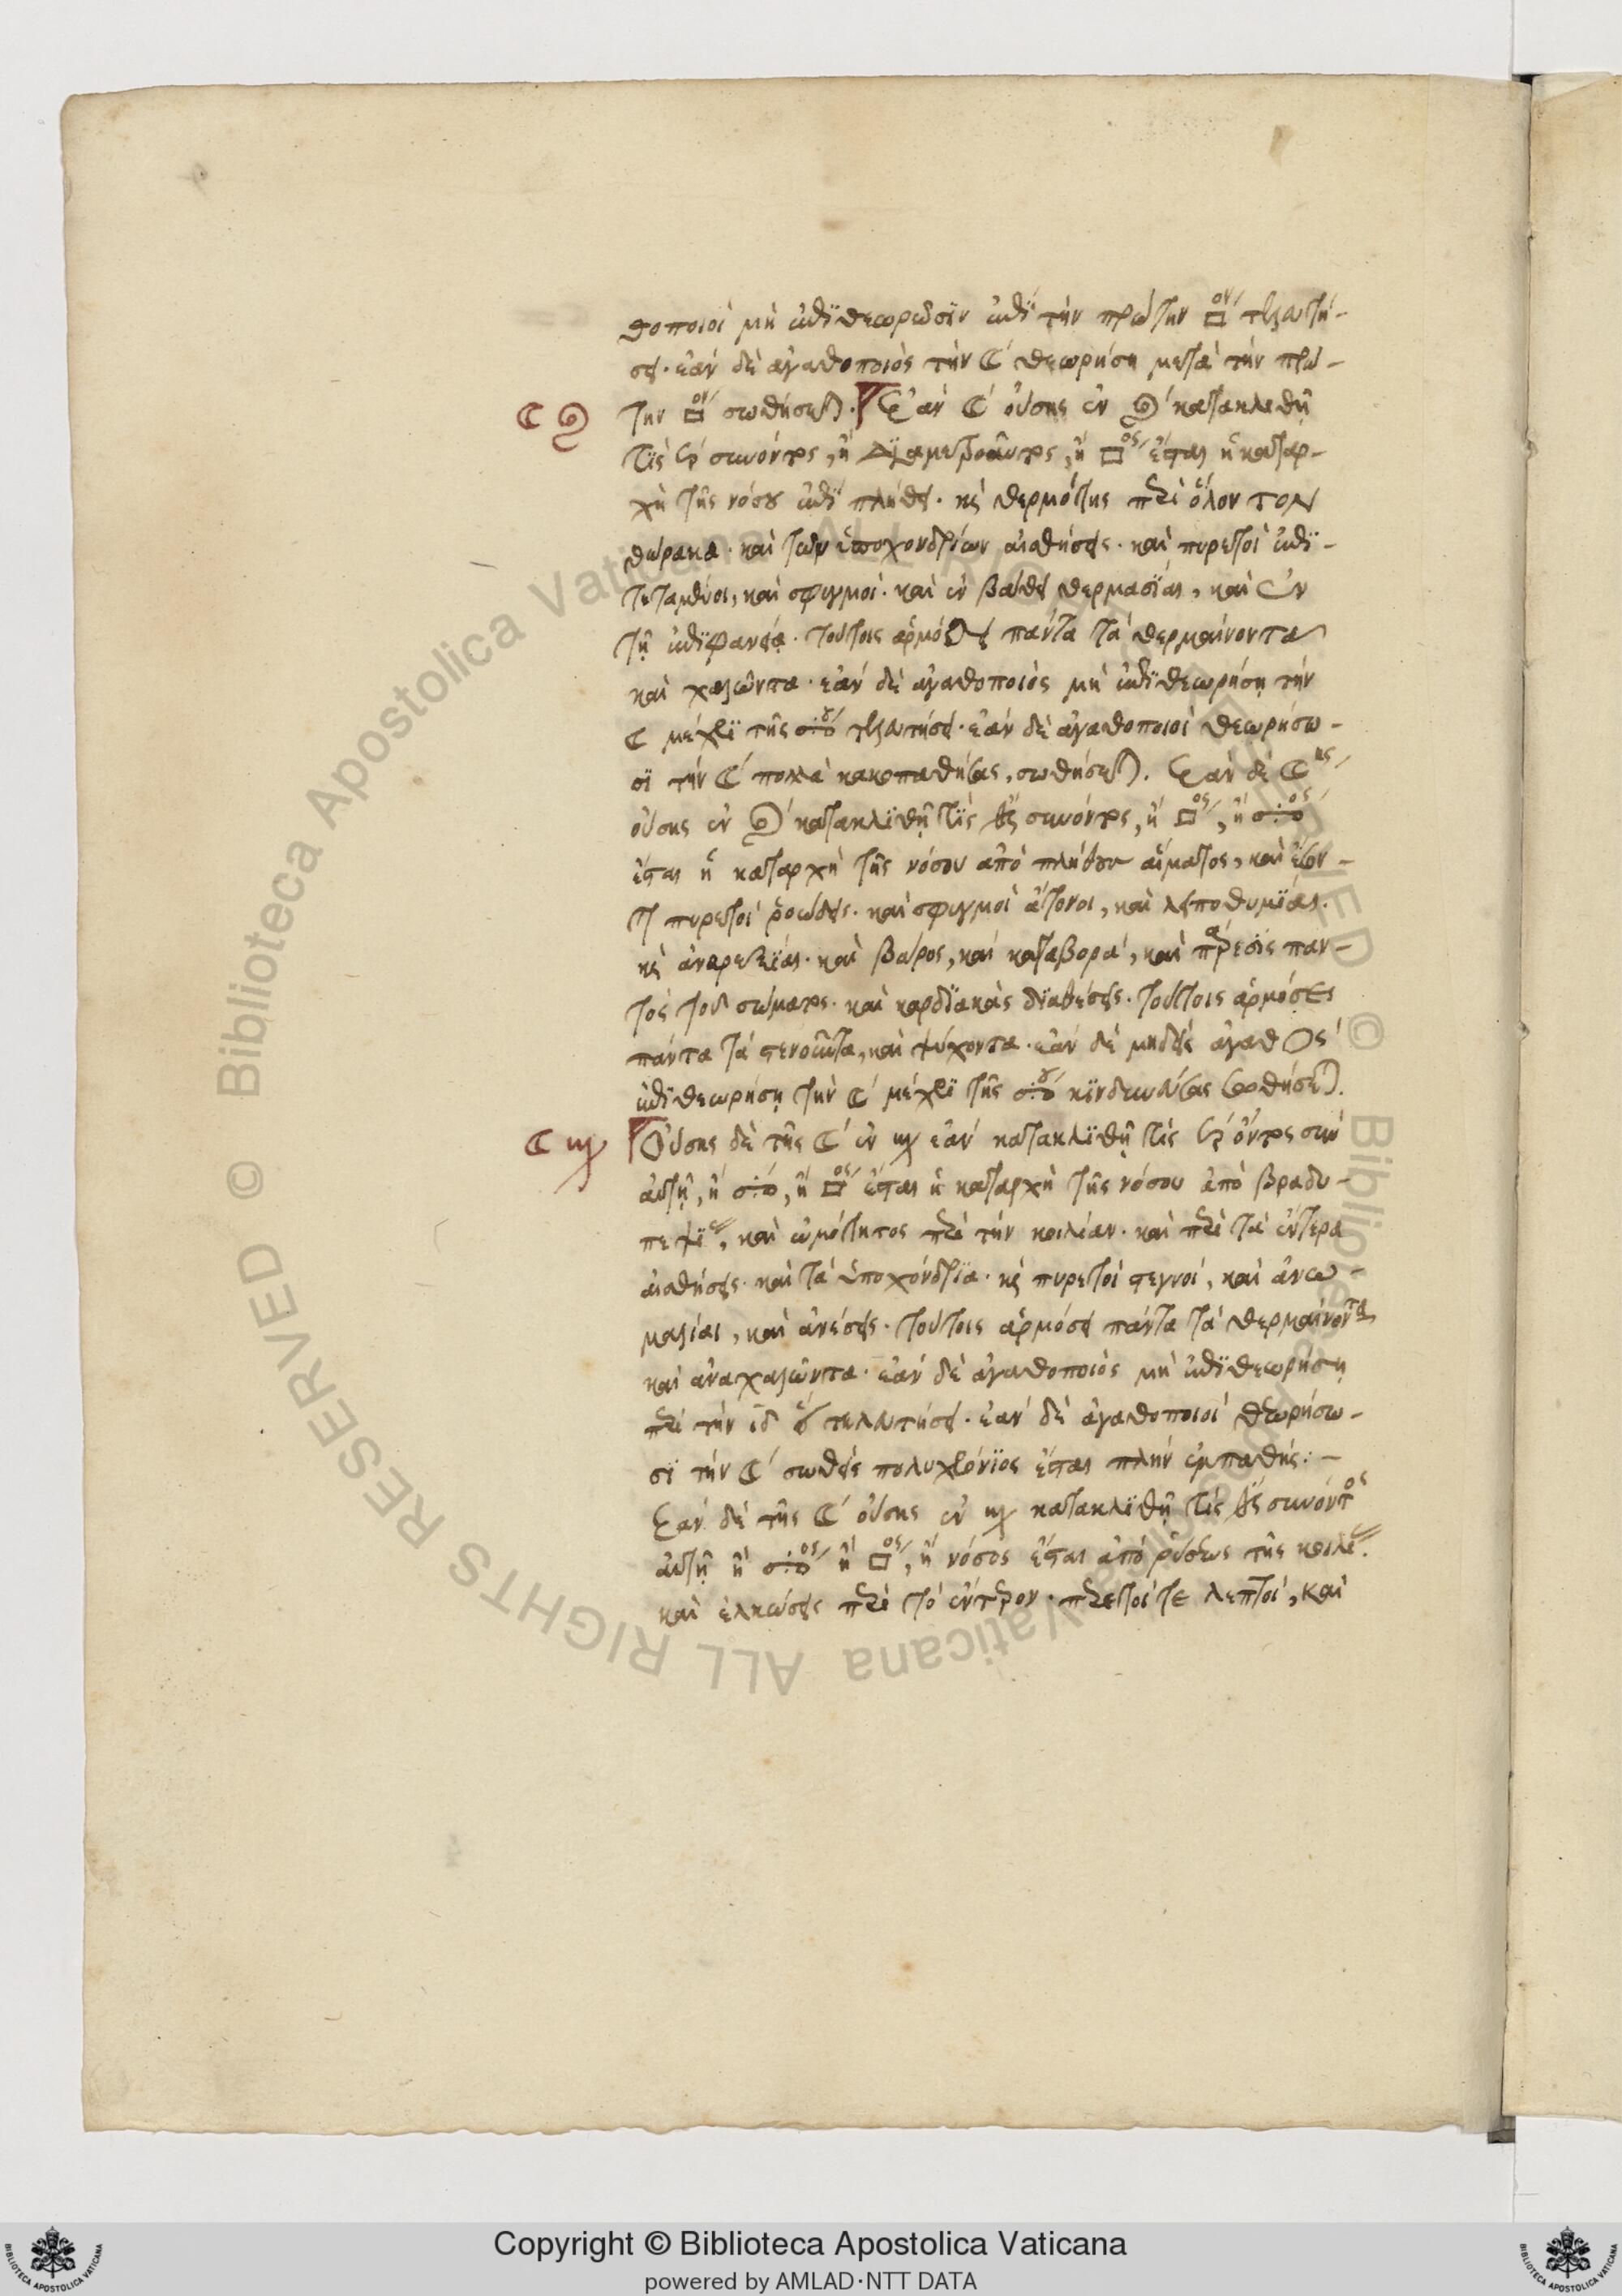 θοποιοὶ μὴ ἐπιθεωρῶσϊν ἐπὶ τὴν πρώτην □ον τελευτή-
σει· ἐὰν δὲ ἀγαθοποιὸς τὴν ☾ θεωρήση μετὰ τὴν πρώ-
☾ ♌
την □ον σωθήσεται. Ἐὰν ☾ οὔσης ἐν ♌ κατακλιθῆ
τὶς ♄ συνόντος, ἢ διαμετροῦντος, ἢ □ος ἔσται ἡ καταρ-
χὴ τῆς νόσου ἐπὶ πλήθει· κὲ θερμότης περὶ ὅλον τὸν
θώρακα· καὶ τῶν ὑποχονδρίων αἰσθήσεις· καὶ πυρετοὶ ἐπϊ-
τεταμένοι, καὶ σφιγμοὶ· καὶ ἐν βάθει θερμασΐαι, καὶ ἐν
τῆ ἐπϊφανεία· τούτοις ἁρμόζει πάντα τὰ θερμαίνοντα
καὶ χαλῶντα· ἐὰν δὲ ἀγαθοποιὸς μὴ ἐπϊθεωρήση τὴν
☾ μέχρϊ τῆς ☍ου τελευτήσει· ἐὰν δὲ ἀγαθοποιοὶ θεωρήσω-
σϊ τὴν ☾ πολλὰ κακοπαθήσας, σωθήσεται. Ἐὰν δὲ ☾ης
οὔσης ἐν ♌ κατακλϊθῆ τὶς ♂ συνόντος, ἢ □ος, ἢ ☍ος
ἔσται ἡ καταρχὴ τῆς νόσου ἀπὸ πλήθου αἵματος, καὶ ἔσον-
ται πυρετοὶ ῥοώδεις· καὶ σφιγμοὶ ἄτονοι, καὶ λειποθυμΐαι·
κὲ ἀνορεξΐαι· καὶ βάρος, καὶ καταβορὰ, καὶ πάρεσϊς παν-
τὸς τοῦ σώματος· καὶ καρδϊακὰς δϊαθέσεις· τούτοις ἁρμόσει
πάντα τὰ στενοῦντα, καὶ ψύχοντα· ἐὰν δὲ μηδεὶς ἀγαθὸς
ἐπϊθεωρήση τὴν ☾ μέχρϊ τῆς ☍ου κϊνδυνεύσας σωθήσεται.
☾ ♍
Οὔσης δὲ τῆς ☾ ἐν ♍ ἐὰν κατακλϊθῆ τὶς ♄ ὄντος σὺν
αὐτῆ, ἢ ☍, ἢ □ος ἔσται ἡ καταρχὴ τῆς νόσου ἀπὸ βραδυ-
πεψΐας, καὶ ὠμότητος περὶ τὴν κοιλίαν· καὶ περὶ τὰ ἔντερα
αἰσθήσεις· καὶ τὰ ὑποχόνδρϊα· κὲ πυρετοὶ στεγνοὶ, καὶ ἀνω-
μαλίαι, καὶ ἀνέσεις· τούτοις ἁρμόσει πάντα τὰ θερμαίνοντα
καὶ ἀναχαλῶντα· ἐὰν δὲ ἀγαθοποιὸς μὴ ἐπϊθεωρήση
περὶ τὴν ιδ τελευτήσει· ἐὰν δὲ ἀγαθοποιοὶ θεωρήσω-
σϊ τὴν ☾ σωθεὶς πολυχρόνϊος ἔσται πλὴν ἐμπαθής:-
Ἐὰν δὲ τῆς ☾ οὔσης ἐν ♍ κατακλϊθῆ τὶς ♂ συνόντος
αὐτῆ ἢ ☍ος ἢ □ος, ἡ νόσος ἔσται ἀπὸ ῥύσεως τῆς κοιλίας.
καὶ ἑλκώσεις περὶ τὸ ἔντερον· πυρετοί τε λεπτοὶ, καὶ
Copyright © Biblioteca Apostolica Vaticana
powered by AMLAD·NTT DATA
© Biblioteca Apostolica Vaticana ALL RIGHTS RESERVED
© Biblioteca Apostolica Vaticana ALL RIGHTS RESERVED